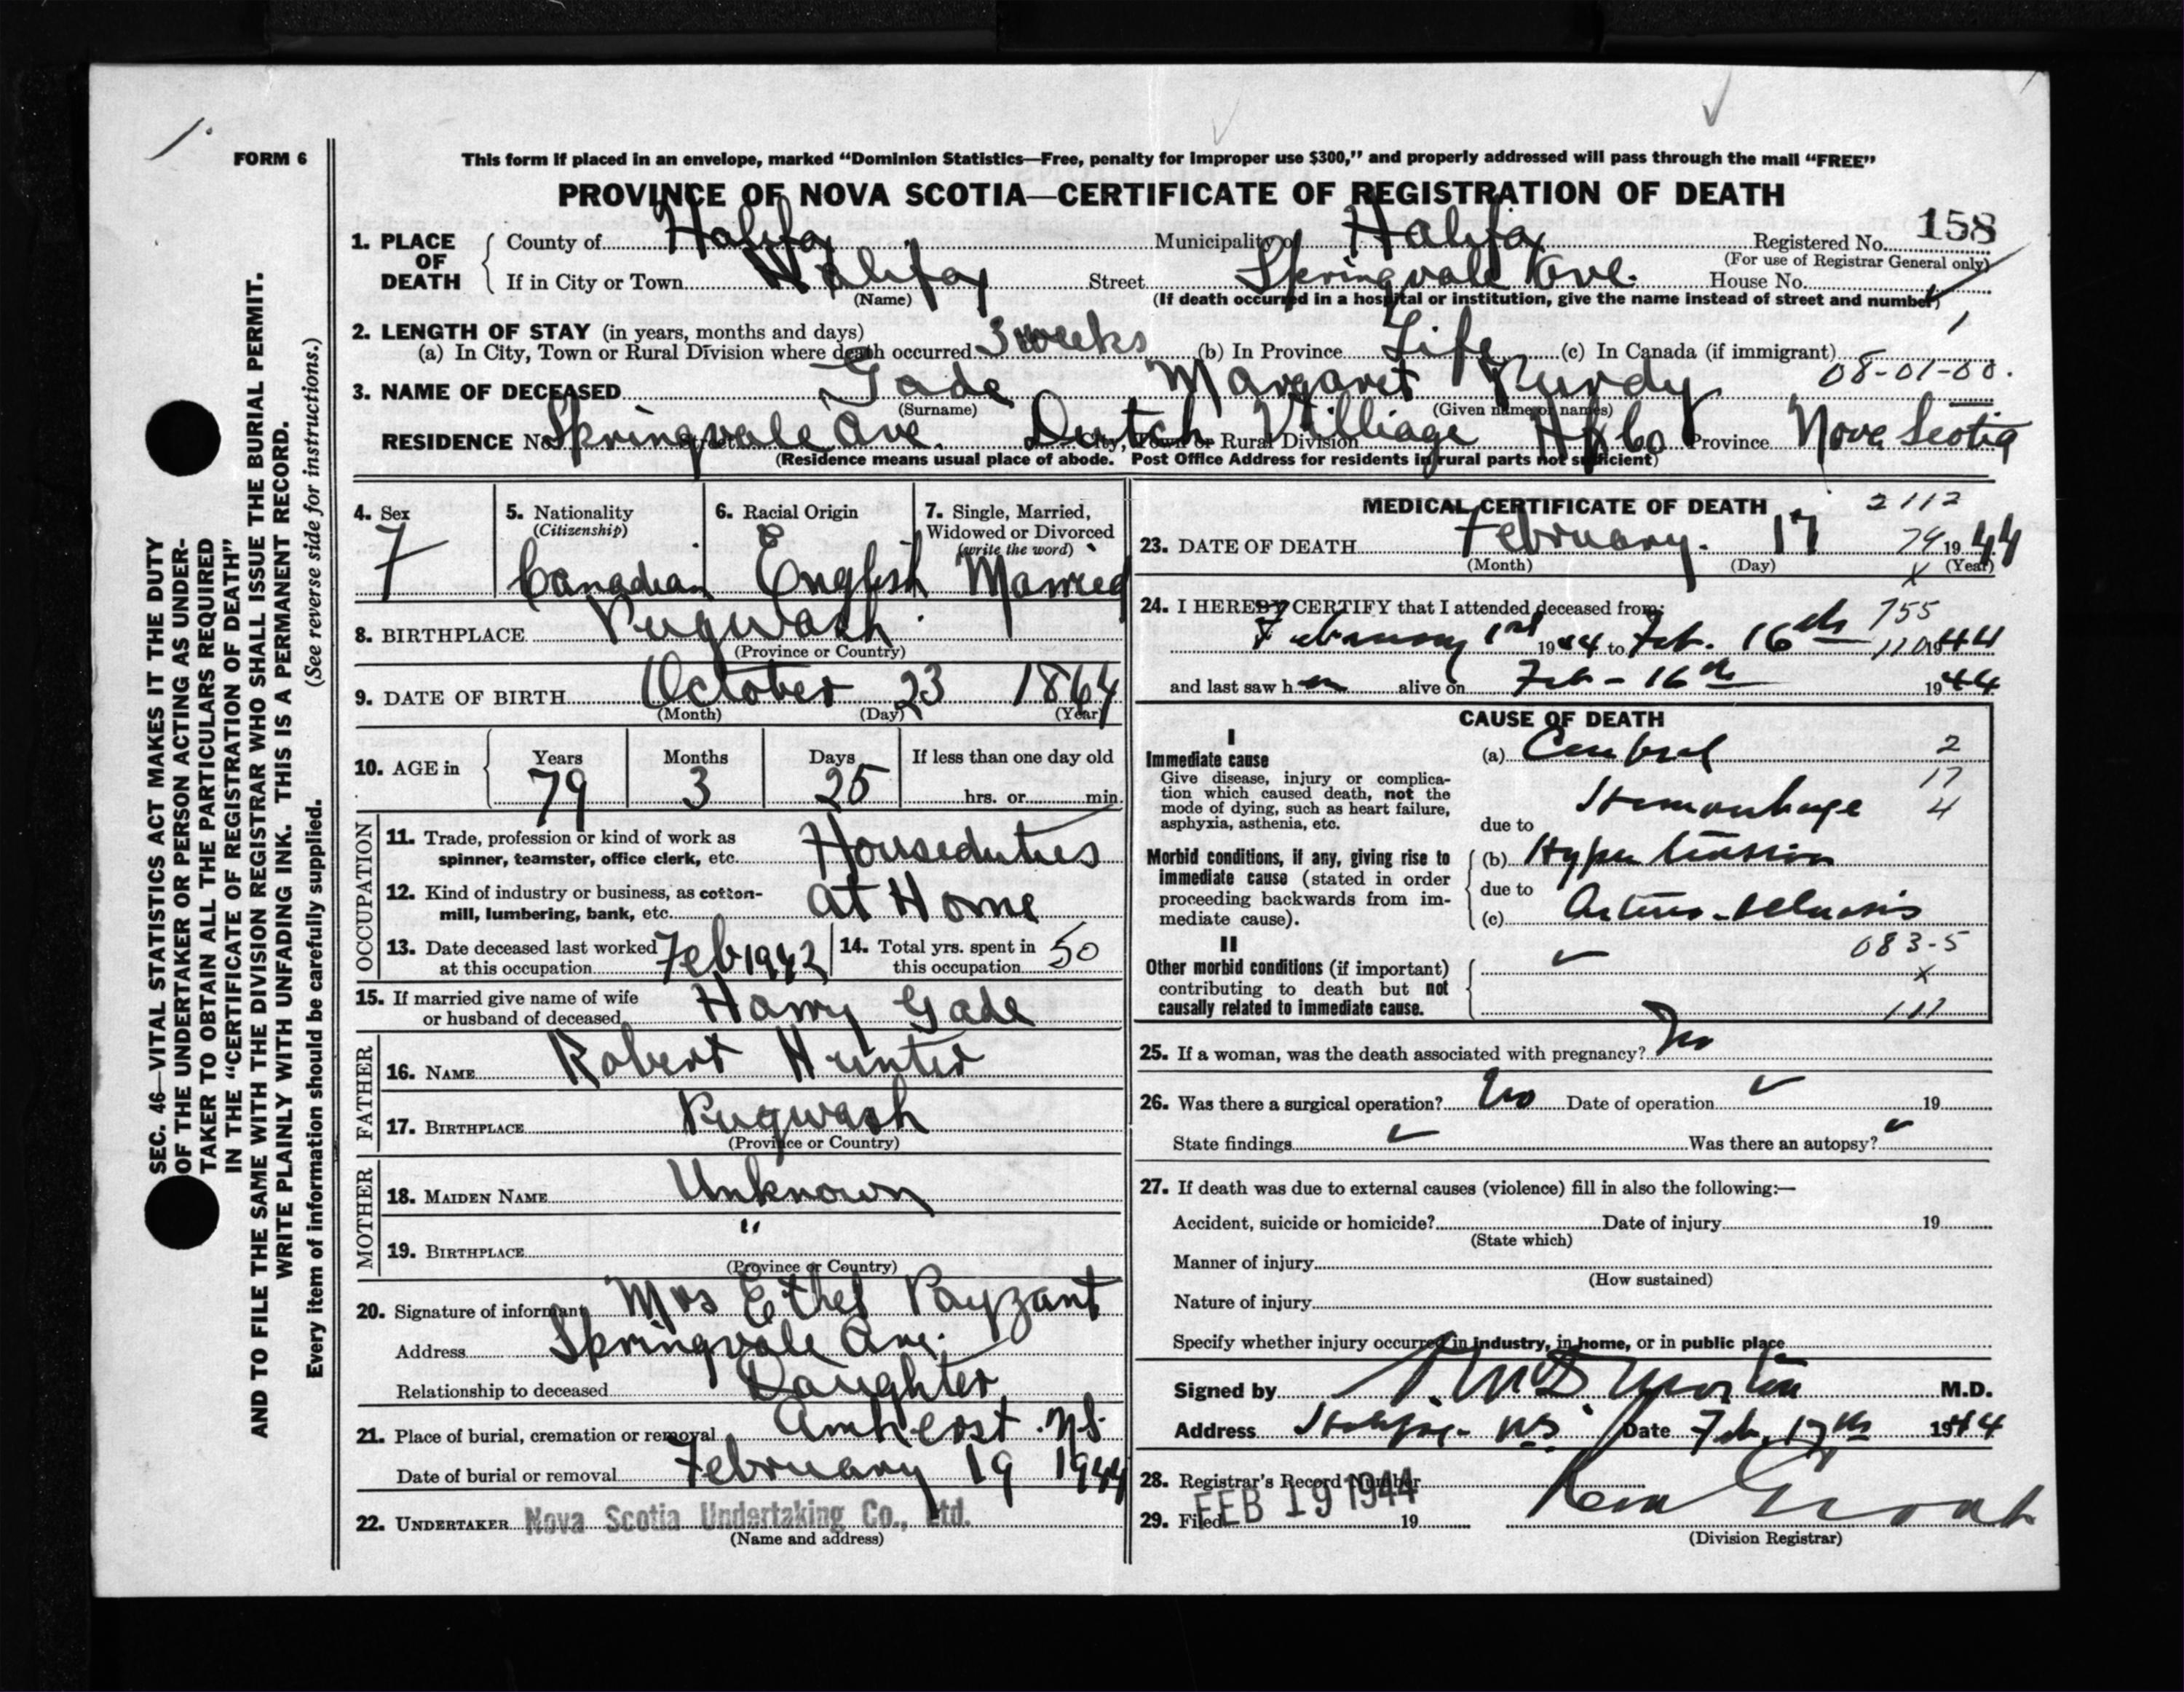 FORM 6
This form if placed in an envelope, marked “Dominion Statistics—Free, penalty for improper use $300,” and properly addressed will pass through the mail “FREE”
PROVINCE OF NOVA SCOTIA—CERTIFICATE OF REGISTRATION OF DEATH
1. PLACE OF DEATH County of Halifax Municipality of Halifax Registered No. 158
(For use of Registrar General only)
If in City or Town Halifax Street Springvale Ave. House No.
(Name) (If death occurred in a hospital or institution, give the name instead of street and number)
2. LENGTH OF STAY (in years, months and days)
(a) In City, Town or Rural Division where death occurred 3 weeks (b) In Province Life (c) In Canada (if immigrant) 1
3. NAME OF DECEASED Gade Margaret Purdy 08-01-00.
(Surname) (Given name or names)
RESIDENCE No. Springvale Ave. Street Dutch Villiage Hfx Co City, Town or Rural Division Province Nova Scotia
(Residence means usual place of abode. Post Office Address for residents in rural parts not sufficient)
4. Sex F
5. Nationality (Citizenship) Canadian
6. Racial Origin English
7. Single, Married, Widowed or Divorced (write the word) Married
8. BIRTHPLACE Pugwash
(Province or Country)
9. DATE OF BIRTH October 23 1864
(Month) (Day) (Year)
10. AGE in Years 79 Months 3 Days 25 If less than one day old hrs. or min.
OCCUPATION
11. Trade, profession or kind of work as spinner, teamster, office clerk, etc. Houseduties
12. Kind of industry or business, as cotton-mill, lumbering, bank, etc. at Home
13. Date deceased last worked at this occupation Feb 1942
14. Total yrs. spent in this occupation 50
15. If married give name of wife or husband of deceased Harry Gade
FATHER
16. NAME Robert Hunter
17. BIRTHPLACE Pugwash
(Province or Country)
MOTHER
18. MAIDEN NAME Unknown
19. BIRTHPLACE "
(Province or Country)
20. Signature of informant Mrs Ethel Payzant
Address Springvale Ave.
Relationship to deceased Daughter
21. Place of burial, cremation or removal Amherst. N.S.
Date of burial or removal February 19 1944
22. UNDERTAKER Nova Scotia Undertaking Co., Ltd.
(Name and address)
MEDICAL CERTIFICATE OF DEATH 2112
23. DATE OF DEATH February. 17 79 1944
(Month) (Day) (Year)
x
24. I HEREBY CERTIFY that I attended deceased from: 755
February 1st 1944 to Feb. 16th 110 1944
and last saw her alive on Feb - 16th 1944
CAUSE OF DEATH
I
Immediate cause
Give disease, injury or complication which caused death, not the mode of dying, such as heart failure, asphyxia, asthenia, etc.
(a) Cerebral 2
17
Hemorrhage 4
due to
Morbid conditions, if any, giving rise to immediate cause (stated in order proceeding backwards from immediate cause).
(b) Hypertension
due to
(c) Arterio-sclerosis
II
083-5
Other morbid conditions (if important) contributing to death but not causally related to immediate cause.
x
111
25. If a woman, was the death associated with pregnancy? No
26. Was there a surgical operation? No Date of operation 19
State findings Was there an autopsy?
27. If death was due to external causes (violence) fill in also the following:—
Accident, suicide or homicide? Date of injury 19
(State which)
Manner of injury
(How sustained)
Nature of injury
Specify whether injury occurred in industry, in home, or in public place
Signed by Morton M.D.
Address Halifax - N.S. Date Feb. 17th 1944
28. Registrar's Record Number
29. Filed FEB 19 1944 19
(Division Registrar)
SEC. 46—VITAL STATISTICS ACT MAKES IT THE DUTY
OF THE UNDERTAKER OR PERSON ACTING AS UNDER-
TAKER TO OBTAIN ALL THE PARTICULARS REQUIRED
IN THE “CERTIFICATE OF REGISTRATION OF DEATH”
AND TO FILE THE SAME WITH THE DIVISION REGISTRAR WHO SHALL ISSUE THE BURIAL PERMIT.
WRITE PLAINLY WITH UNFADING INK. THIS IS A PERMANENT RECORD.
Every item of information should be carefully supplied. (See reverse side for instructions.)